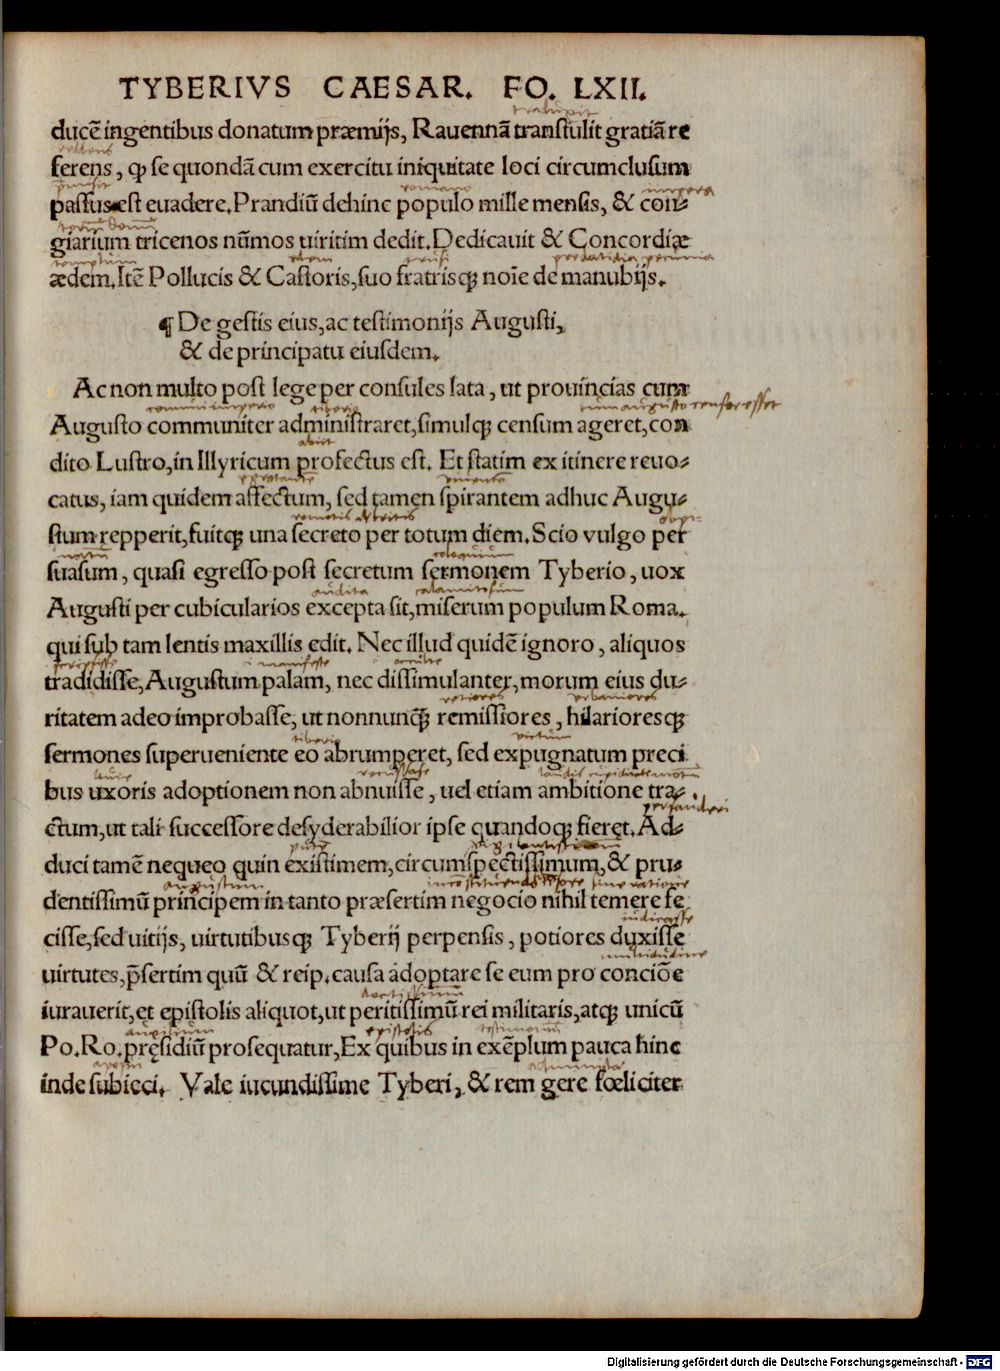 TYBERIVS CAESAR. FO. LXII.
ducē ingentibus donatum præmijs, Rauennā transtulit gratiā re
ferens, ꝙ se quondā cum exercitu iniquitate loci circumclusum
passus est euadere. Prandiū dehinc populo mille mensis, & con-
giarium tricenos nūmos uiritim dedit. Dedicauit & Concordiæ
ædem. Itē Pollucis & Castoris, suo fratrisqꝫ noīe de manubijs.
¶ De gestis eius, ac testimonijs Augusti,
& de principatu eiusdem.
Ac non multo post lege per consules lata, ut prouincias cum
Augusto communiter administraret, simulqꝫ censum ageret, con
dito Lustro, in Illyricum profectus est. Et statim ex itinere reuo-
catus, iam quidem affectum, sed tamen spirantem adhuc Augu-
stum repperit, fuitqꝫ una secreto per totum diem. Scio vulgo per
suasum, quasi egresso post secretum sermonem Tyberio, uox
Augusti per cubicularios excepta sit, miserum populum Roma.
qui sub tam lentis maxillis edit. Nec illud quidē ignoro, aliquos
tradidisse, Augustum palam, nec dissimulanter, morum eius du-
ritatem adeo improbasse, ut nonnunqꝫ̄ remissiores, hilarioresqꝫ
sermones superueniente eo abrumperet, sed expugnatum preci
bus uxoris adoptionem non abnuisse, uel etiam ambitione tra-
ctum, ut tali successore desyderabilior ipse quandoqꝫ fieret. Ad-
duci tamē nequeo quin existimem, circumspectissimum, & pru-
dentissimū principem in tanto præsertim negocio nihil temere fe
cisse, sed uitijs, uirtutibusqꝫ Tyberij perpensis, potiores duxisse
uirtutes, p̄sertim quū & reip. causa adoptare se eum pro conciōe
iurauerit, et epistolis aliquot, ut peritissimū rei militaris, atqꝫ unicū
Po. Ro. pręsidiū prosequatur, Ex quibus in exēplum pauca hinc
inde subieci. Vale iucundissime Tyberi, & rem gere fœliciter
Digitalisierung gefördert durch die Deutsche Forschungsgemeinschaft - DFG